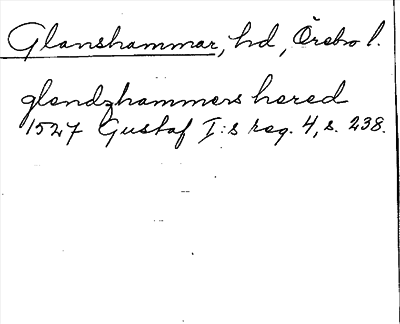 Glanshammar, hd, Örebro l.
glendzhammers hered
1527 Gustaf I:s reg. 4, s. 238.